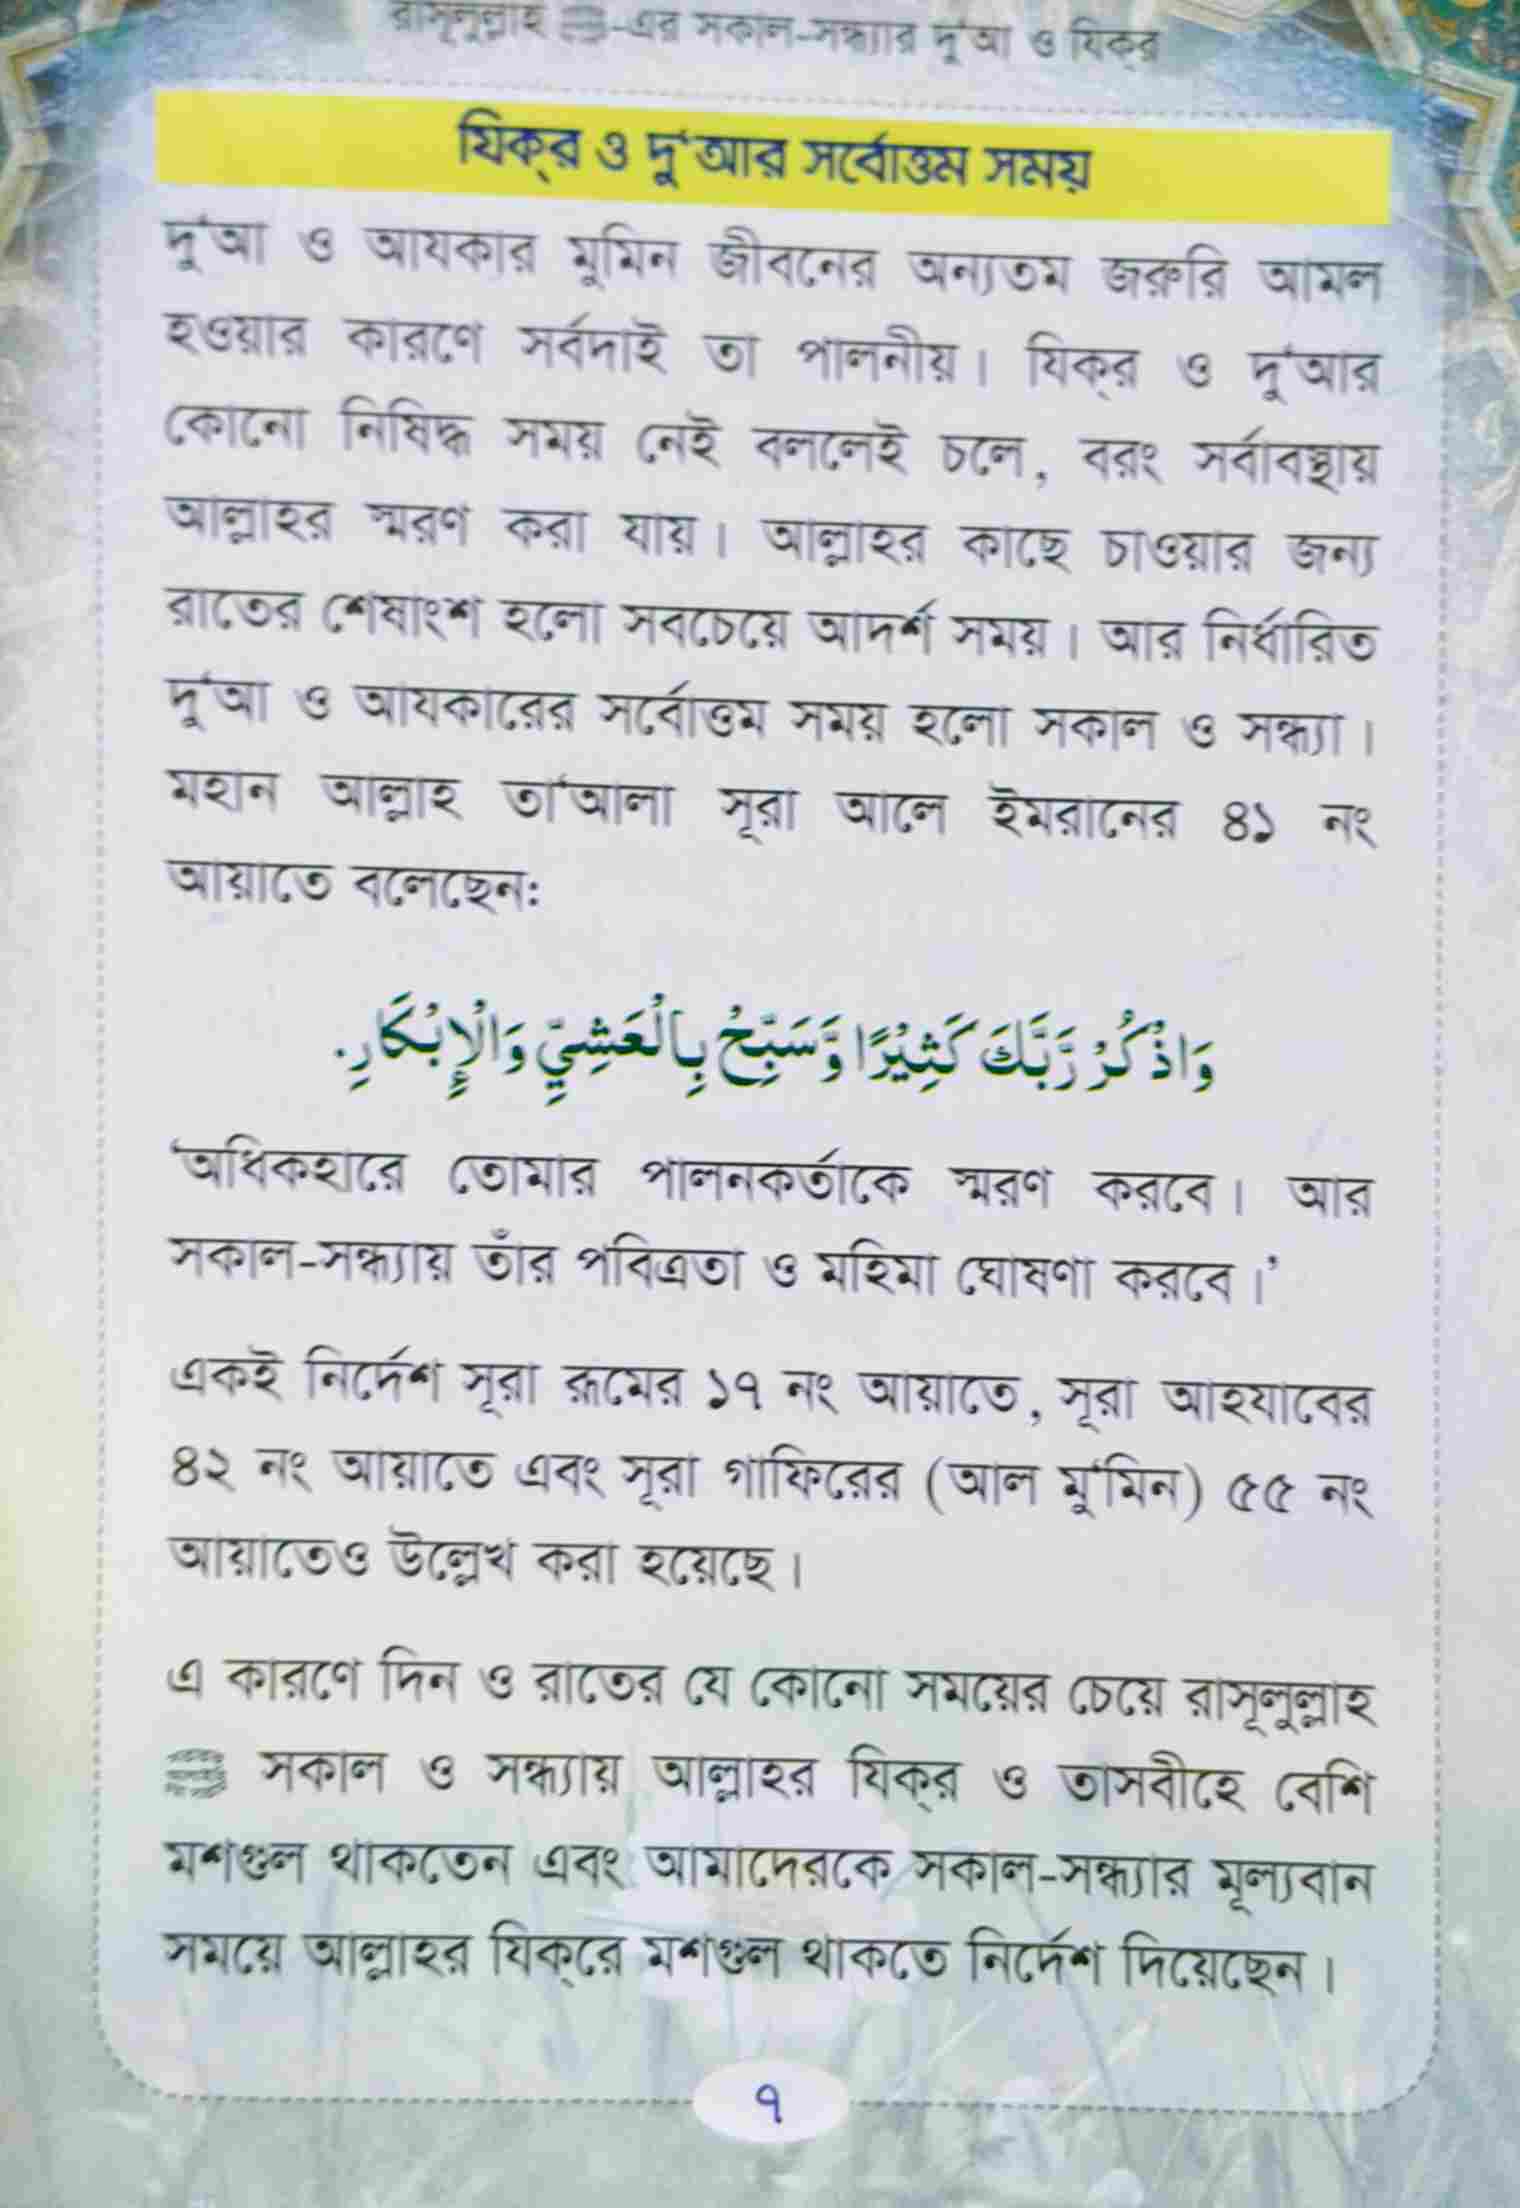 রাসূলুল্লাহ ﷺ-এর সকাল-সন্ধ্যার দু‘আ ও যিক্‌র
যিক্‌র ও দু‘আর সর্বোত্তম সময়
দু‘আ ও আযকার মুমিন জীবনের অন্যতম জরুরি আমল
হওয়ার কারণে সর্বদাই তা পালনীয়। যিক্‌র ও দু‘আর
কোনো নিষিদ্ধ সময় নেই বললেই চলে, বরং সর্বাবস্থায়
আল্লাহর স্মরণ করা যায়। আল্লাহর কাছে চাওয়ার জন্য
রাতের শেষাংশ হলো সবচেয়ে আদর্শ সময়। আর নির্ধারিত
দু‘আ ও আযকারের সর্বোত্তম সময় হলো সকাল ও সন্ধ্যা।
মহান আল্লাহ তা‘আলা সূরা আলে ইমরানের ৪১ নং
আয়াতে বলেছেন:
وَاذْكُرْ رَّبَّكَ كَثِيْرًا وَّسَبِّحْ بِالْعَشِيِّ وَالْإِبْكَارِ.
‘অধিকহারে তোমার পালনকর্তাকে স্মরণ করবে। আর
সকাল-সন্ধ্যায় তাঁর পবিত্রতা ও মহিমা ঘোষণা করবে।’
একই নির্দেশ সূরা রূমের ১৭ নং আয়াতে, সূরা আহযাবের
৪২ নং আয়াতে এবং সূরা গাফিরের (আল মু‘মিন) ৫৫ নং
আয়াতেও উল্লেখ করা হয়েছে।
এ কারণে দিন ও রাতের যে কোনো সময়ের চেয়ে রাসূলুল্লাহ
ﷺ সকাল ও সন্ধ্যায় আল্লাহর যিক্‌র ও তাসবীহে বেশি
মশগুল থাকতেন এবং আমাদেরকে সকাল-সন্ধ্যার মূল্যবান
সময়ে আল্লাহর যিক্‌রে মশগুল থাকতে নির্দেশ দিয়েছেন।
৭